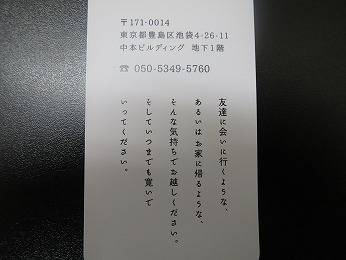 〒171-0014
東京都豊島区池袋4-26-11
中本ビルディング 地下1階
☎ 050-5349-5760
友達に会いに行くような、
あるいはお家に帰るような、
そんな気持ちでお越しください。
そしていつまでも寛いで
いってください。